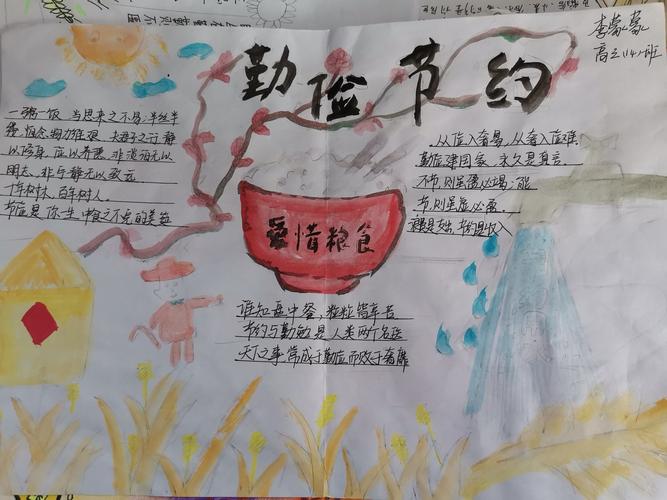 李蒙蒙
高三1141班
勤俭节约
一粥一饭,当思来之不易;半丝半
缕,恒念物力维艰.夫君子之行,静
以修身,俭以养德,非澹泊无以
明志,非宁静无以致远.
十年树林,百年树人.
节俭是你一生中
的美筵
从俭入奢易,从奢入俭难.
勤俭建国家,永久是真言.
不节,则虽盈必竭;
节,则虽虚必盈.
节约是收入
爱惜粮食
谁知盘中餐,粒粒皆辛苦
节约与勤勉是人类两个名医
天下之事,常成于勤俭而败于奢靡